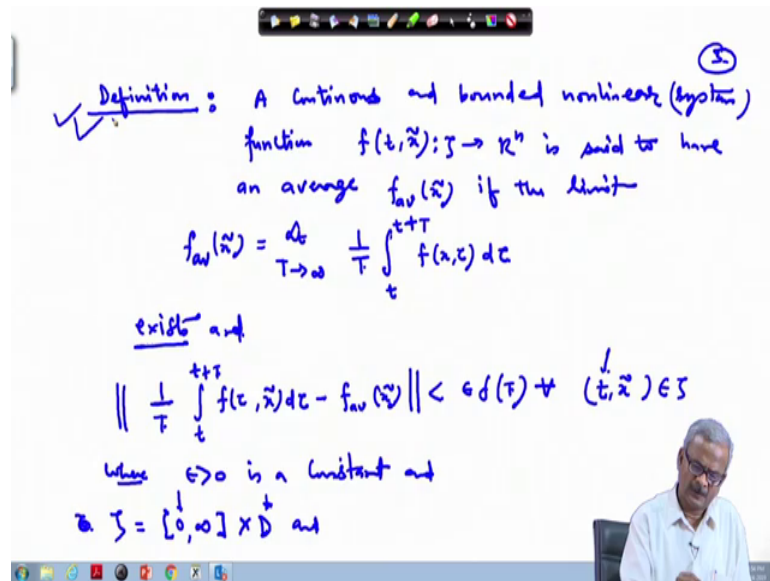 5.
Definition : A Continous and bounded nonlinear (system)
function f(t, x̃): ζ → Rⁿ is said to have
an average f_av(x̃) if the limit
f_av(x̃) = Lt T→∞ 1/T ∫_t^{t+T} f(x,τ) dτ
exists and
|| 1/T ∫_t^{t+T} f(τ, x̃) dτ - f_av(x̃) || < ϵ σ(T) ∀ (t, x̃) ∈ ζ
where ϵ>0 is a Constant and
ζ = [0, ∞] × D and